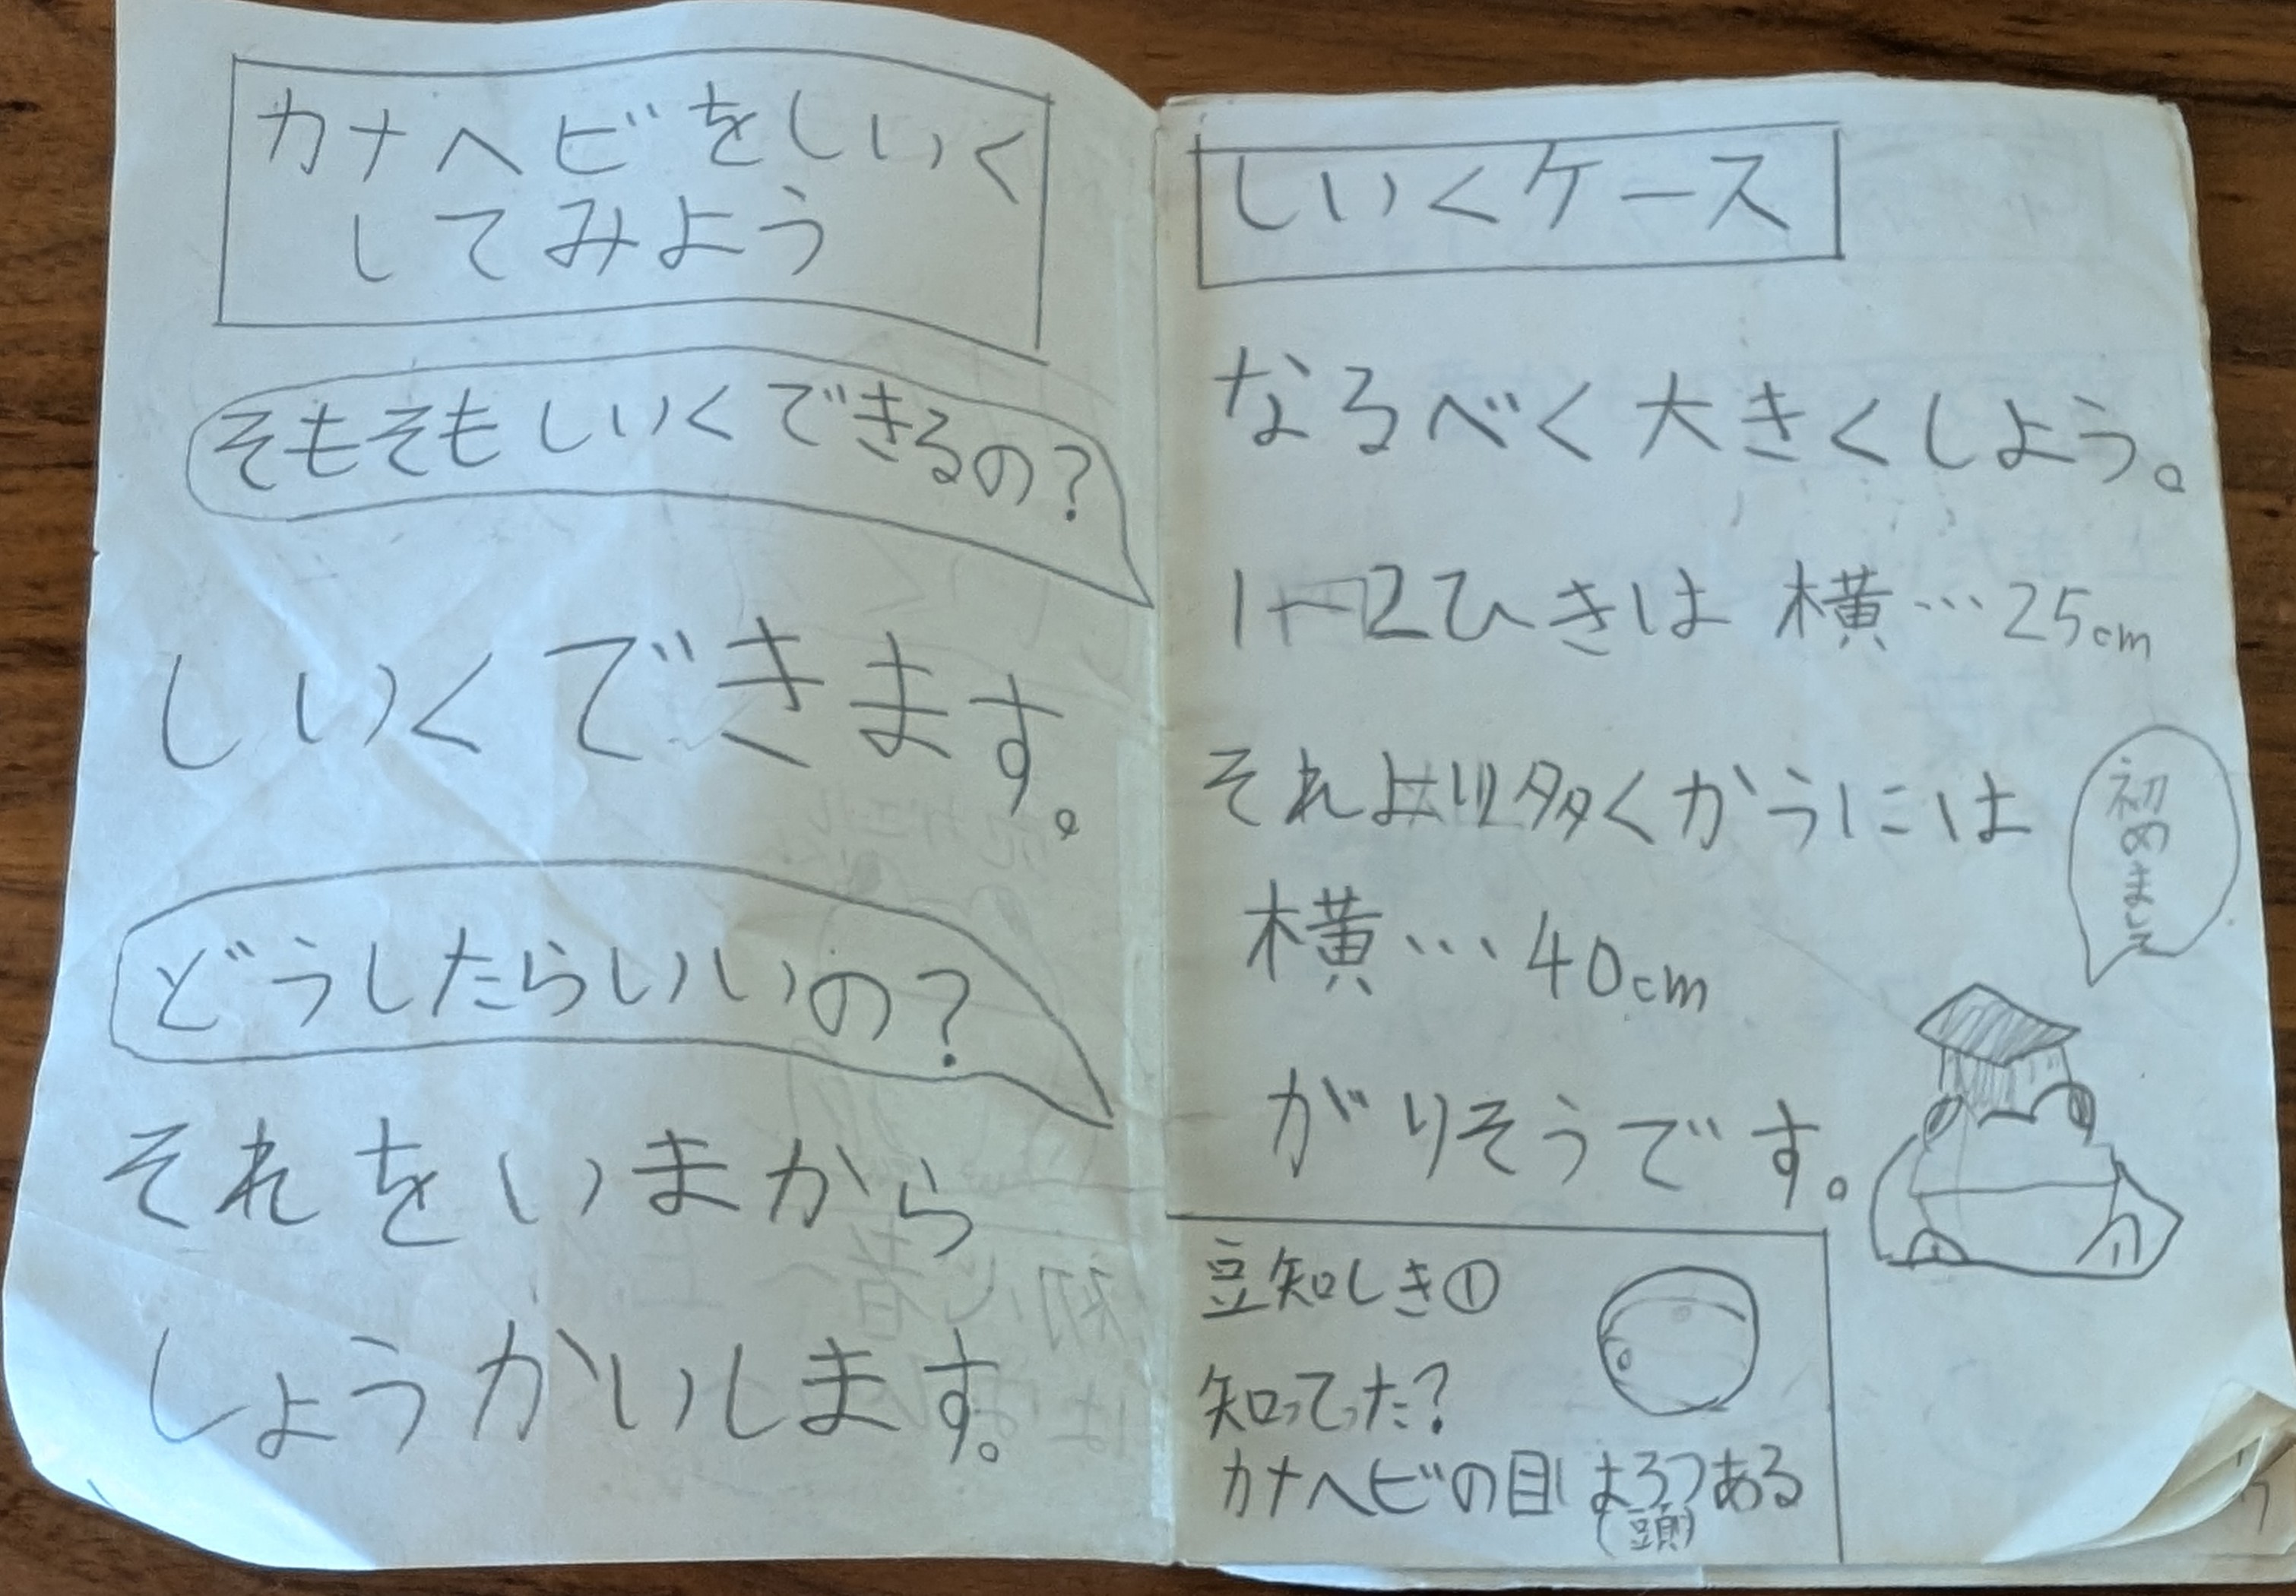 カナヘビをしいく
してみよう
そもそもしいくできるの?
しいくできます。
どうしたらいいの?
それをいまから
しょうかいします。
しいくケース
なるべく大きくしよう。
1~2ひきは 横…25cm
それより多くかうには
横…40cm
がりそうです。
初めまして
豆知しき①
知ってった?
カナヘビの目は3つある
(頭)